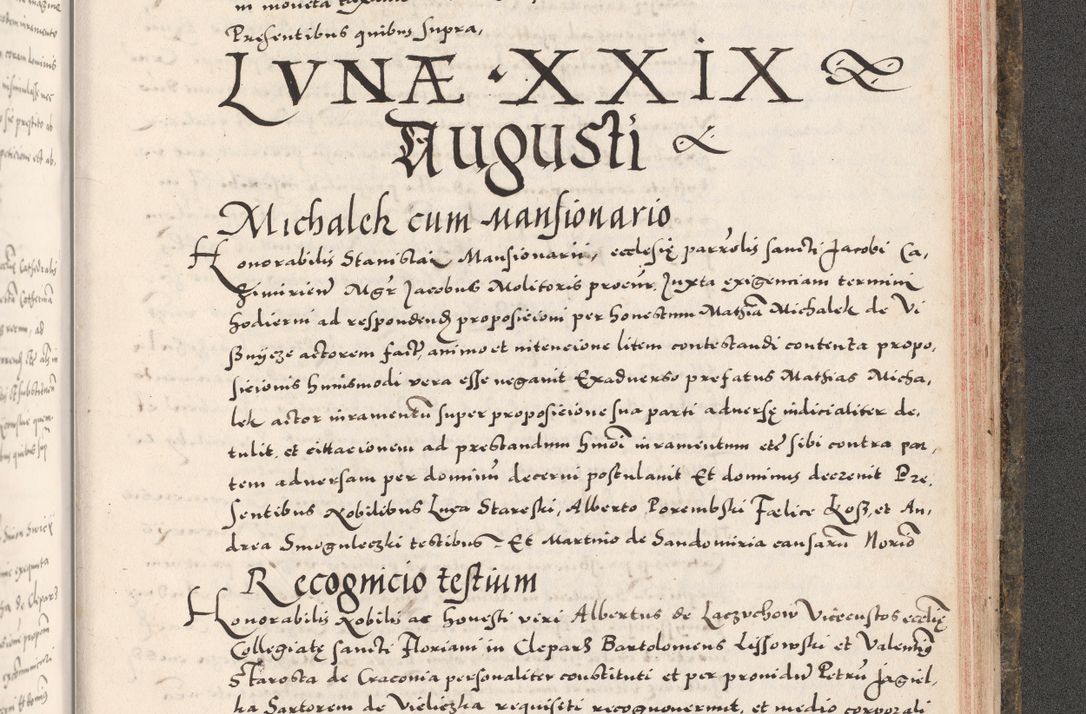 in moneta
Presentibus quibus supra,
LVNÆ · XXIX
Augusti
Michalek cum Mansionario
Honorabilis Stanislai Mansionarii, ecclesię parrolis sancti Jacobi Ca,
Zimirien Mgr Jacobus Molitoris procur. Juxta exigenciam termini
hodierni ad respondend proposicioni per honestum Mathiā Michalek de Vi
ßnycze actorem fact, animo et intencione litem contestandi contenta propo,
sicionis huiusmodi vera esse negauit Exaduerso prefatus Mathias Micha,
lek actor iuramentū super proposicione sua parti aduersę iudicialiter de,
tulit, et cittacionem ad prestandum hmōi iuramentum etc sibi contra par
tem aduersam per dominū decerni postulauit Et dominus decreuit Pre,
sentibus Nobilibus Luca Stareski, Alberto Porembski Fælice Koß, et An,
drea Smoguleczki testibus - Et Martino de Sandomiria causarū Norio
Recognicio testium
Honorabilis Nobilis ac honesti viri Albertus de Laczuchow Vicecustos ecclię
Collegiatę sancti Floriani in Cleparz Bartolomeus Lissowski et Valentinus
Starosta de Cracouia personaliter constituti et per prouidū Petrū Jagiel,
ka Sartorem de Vieliczka requisiti recognouerunt, et medio corporali